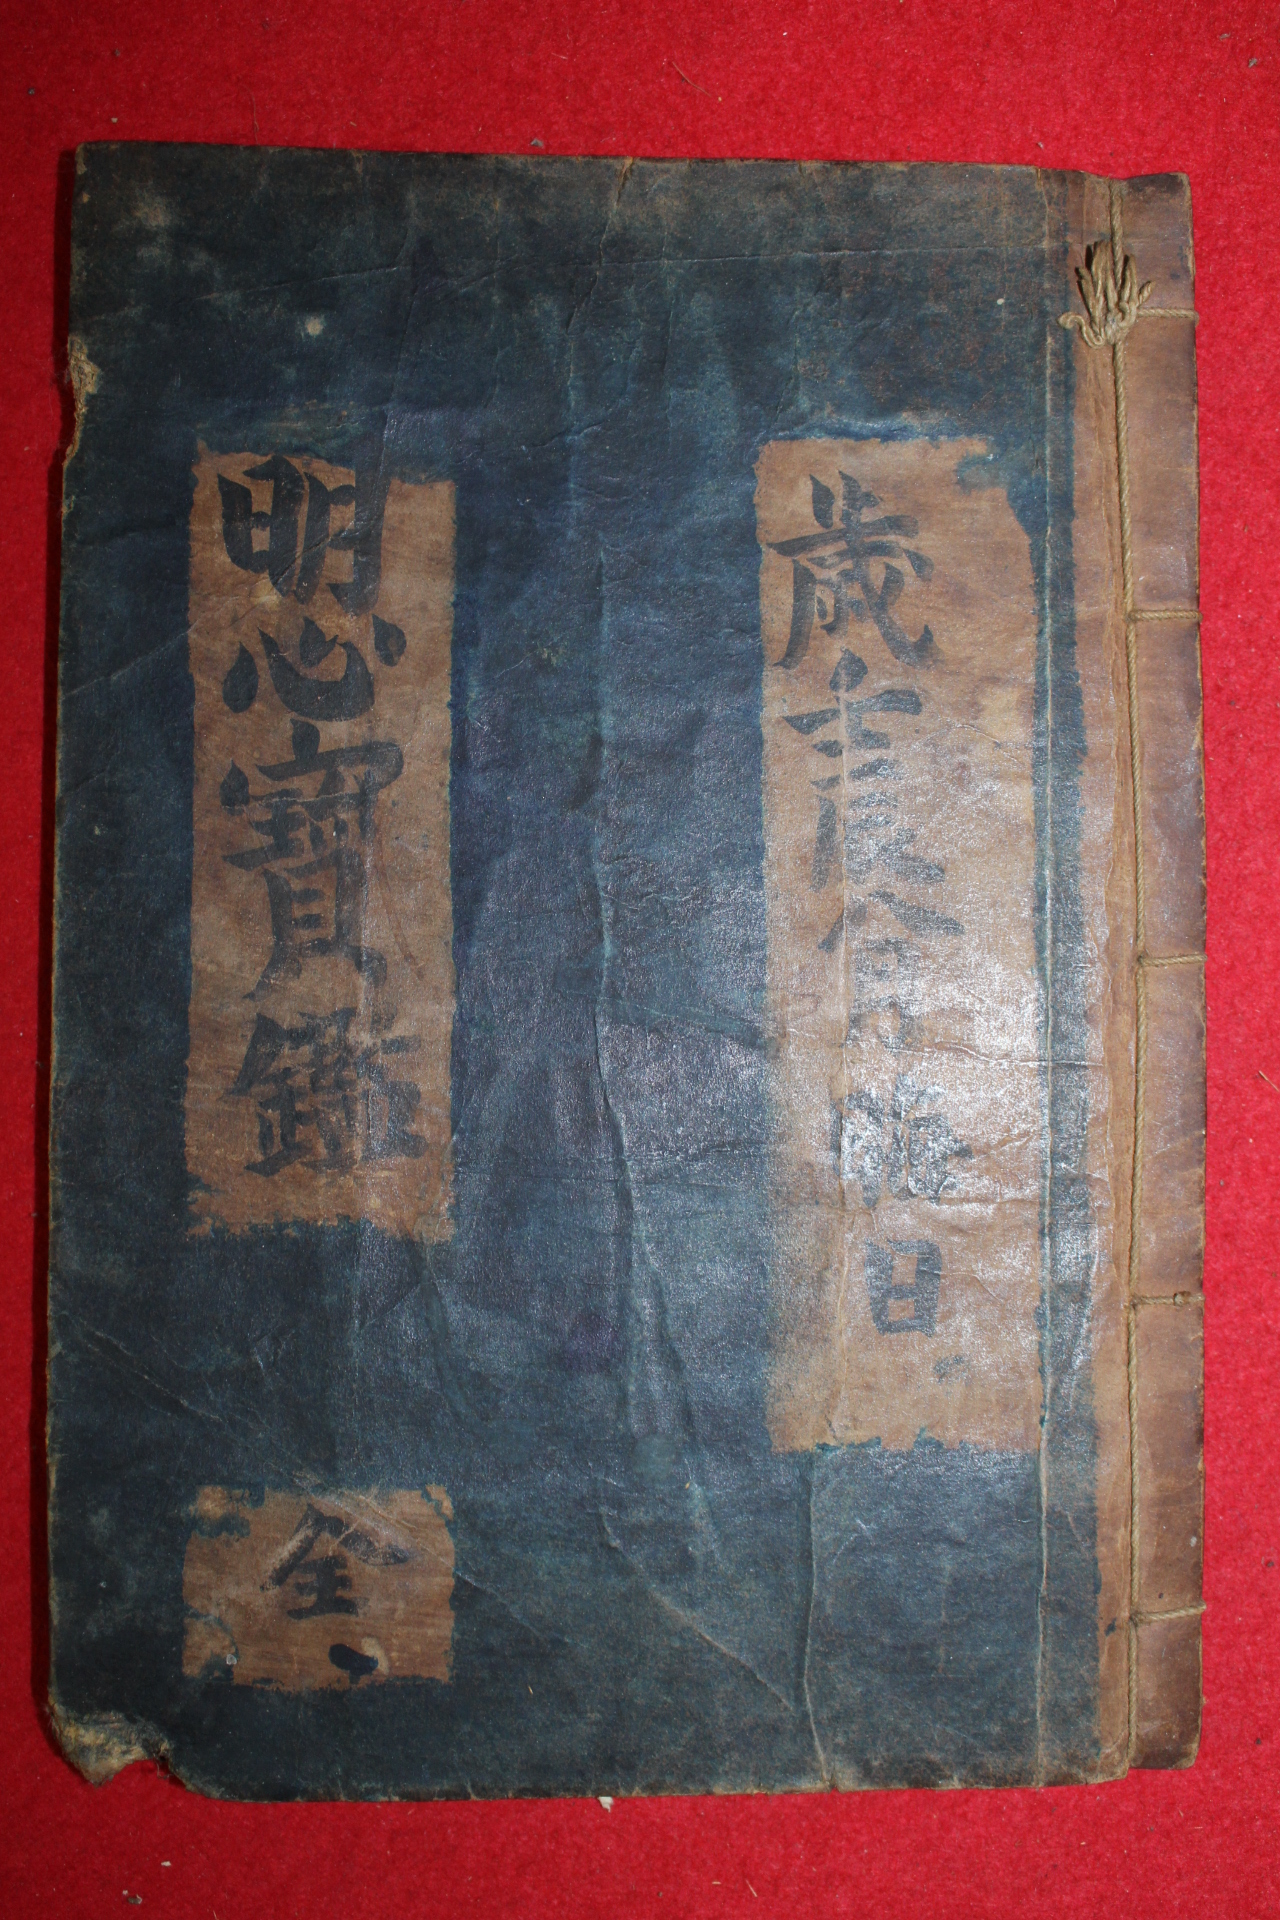 歲壬辰日
明心寶鑑
全